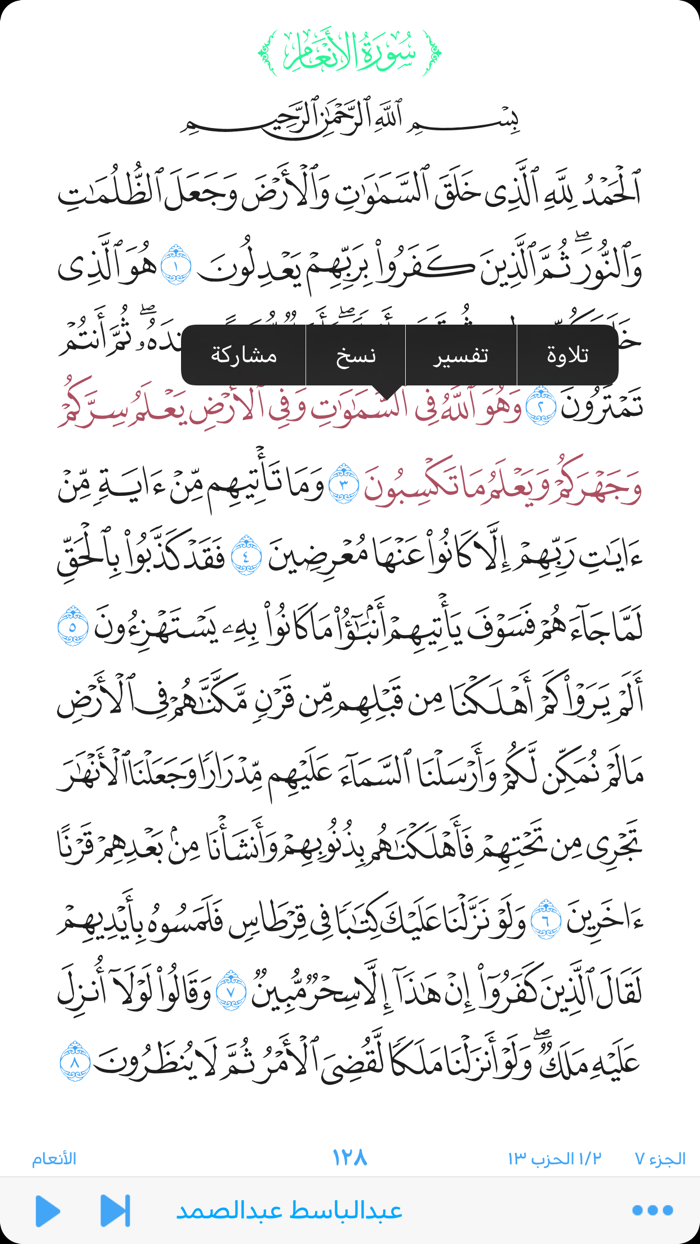 سُورَةُ الأَنْعَامِ
بِسْمِ اللَّهِ الرَّحْمَٰنِ الرَّحِيمِ
الْحَمْدُ لِلَّهِ الَّذِى خَلَقَ السَّمَٰوَٰتِ وَالْأَرْضَ وَجَعَلَ الظُّلُمَٰتِ
وَالنُّورَ ۖ ثُمَّ الَّذِينَ كَفَرُوا۟ بِرَبِّهِمْ يَعْدِلُونَ ١ هُوَ الَّذِى
عِندَهُۥ ۖ ثُمَّ أَنتُمْ
تلاوة تفسير نسخ مشاركة
تَمْتَرُونَ ٢ وَهُوَ اللَّهُ فِى السَّمَٰوَٰتِ وَفِى الْأَرْضِ يَعْلَمُ سِرَّكُمْ
وَجَهْرَكُمْ وَيَعْلَمُ مَا تَكْسِبُونَ ٣ وَمَا تَأْتِيهِم مِّنْ ءَايَةٍ مِّنْ
ءَايَٰتِ رَبِّهِمْ إِلَّا كَانُوا۟ عَنْهَا مُعْرِضِينَ ٤ فَقَدْ كَذَّبُوا۟ بِالْحَقِّ
لَمَّا جَآءَهُمْ فَسَوْفَ يَأْتِيهِمْ أَنۢبَٰٓؤُا۟ مَا كَانُوا۟ بِهِۦ يَسْتَهْزِءُونَ ٥
أَلَمْ يَرَوْا۟ كَمْ أَهْلَكْنَا مِن قَبْلِهِم مِّن قَرْنٍ مَّكَّنَّٰهُمْ فِى الْأَرْضِ
مَا لَمْ نُمَكِّن لَّكُمْ وَأَرْسَلْنَا السَّمَآءَ عَلَيْهِم مِّدْرَارًا وَجَعَلْنَا الْأَنْهَٰرَ
تَجْرِى مِن تَحْتِهِمْ فَأَهْلَكْنَٰهُم بِذُنُوبِهِمْ وَأَنشَأْنَا مِنۢ بَعْدِهِمْ قَرْنًا
ءَاخَرِينَ ٦ وَلَوْ نَزَّلْنَا عَلَيْكَ كِتَٰبًا فِى قِرْطَاسٍ فَلَمَسُوهُ بِأَيْدِيهِمْ
لَقَالَ الَّذِينَ كَفَرُوٓا۟ إِنْ هَٰذَآ إِلَّا سِحْرٌ مُّبِينٌ ٧ وَقَالُوا۟ لَوْلَآ أُنزِلَ
عَلَيْهِ مَلَكٌ ۖ وَلَوْ أَنزَلْنَا مَلَكًا لَّقُضِىَ الْأَمْرُ ثُمَّ لَا يُنظَرُونَ ٨
الجزء ٧ ١/٢ الحزب ١٣ ١٢٨ الأنعام
عبدالباسط عبدالصمد